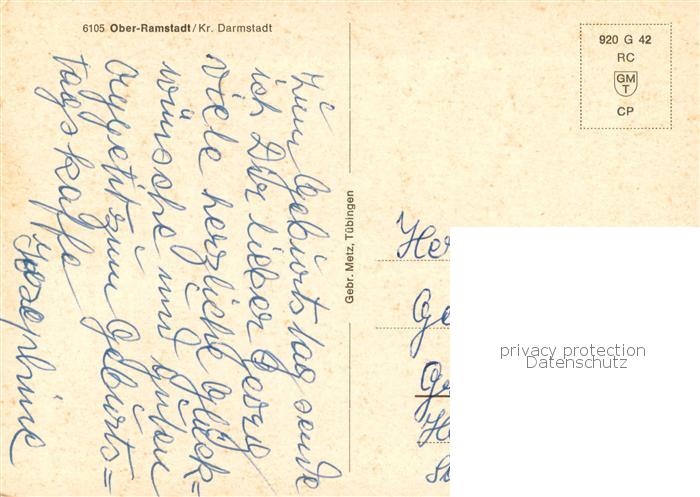 6105 Ober-Ramstadt/Kr. Darmstadt
Zum Geburtstag sende
ich Dir lieber Georg
viele herzliche Glück=
wünsche und guten
Appetit zum Geburts=
tagskaffe
Josephine
Gebr. Metz, Tübingen
920 G 42
RC
GM
T
CP
Her
Ge
Ge
privacy protection
Datenschutz